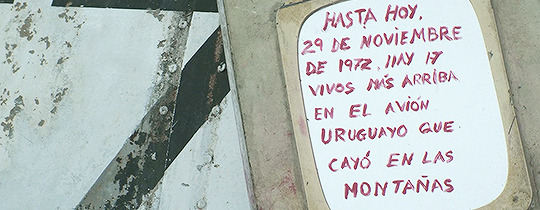 HASTA HOY,
29 DE NOVIEMBRE
DE 1972, HAY 17
VIVOS MÁS ARRIBA
EN EL AVIÓN
URUGUAYO QUE
CAYÓ EN LAS
MONTAÑAS